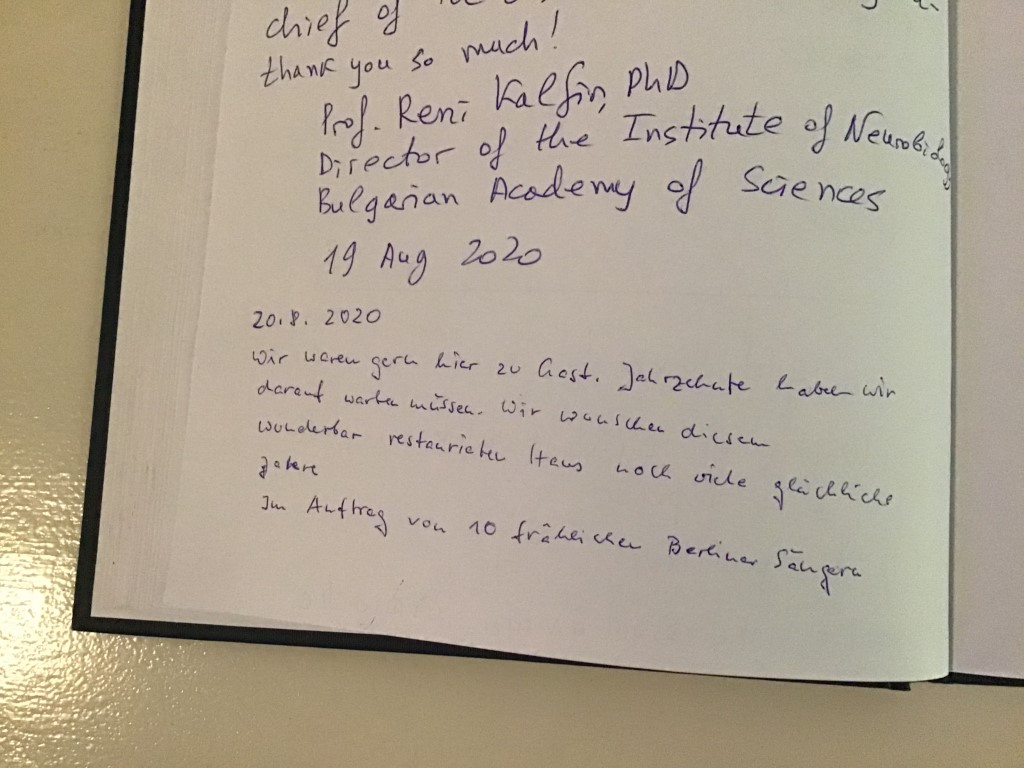 chief of
thank you so much!
Prof. Reni Kalfin, PhD
Director of the Institute of Neurobiology
Bulgarian Academy of Sciences
19 Aug 2020
20.8. 2020
Wir waren gern hier zu Gast. Jahrzehnte haben wir
darauf warten müssen. Wir wünschen diesem
wunderbar restaurierten Haus noch viele glückliche
Jahre
Im Auftrag von 10 fröhlichen Berliner Sängern